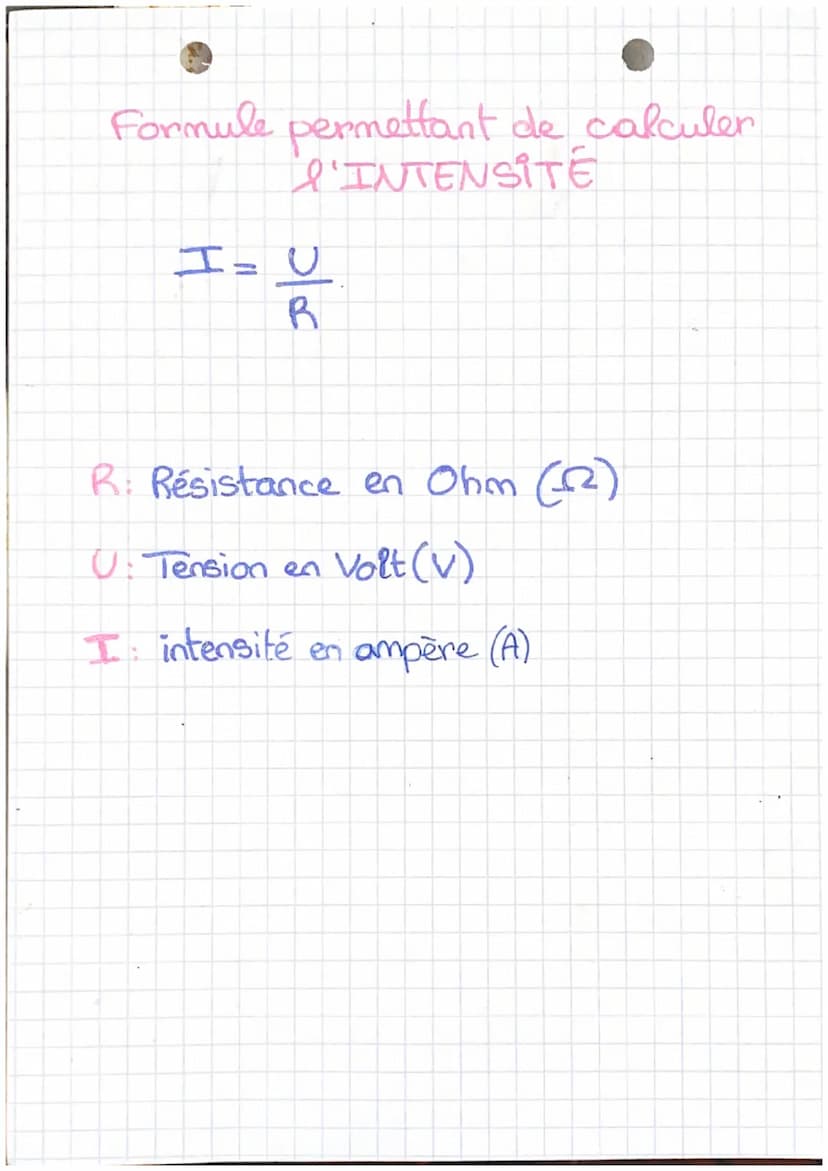 Formule permettant de calculer
l'INTENSITÉ
I = U
R
R: Résistance en Ohm (Ω)
U: Tension en Volt (V)
I: intensité en ampère (A)